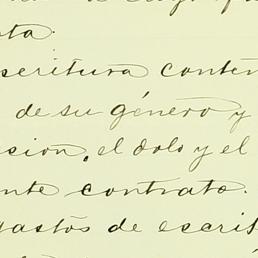 ta.
scritura conten
de su género y
sion, el dolo y el
nte contrato.
gastos de escrit